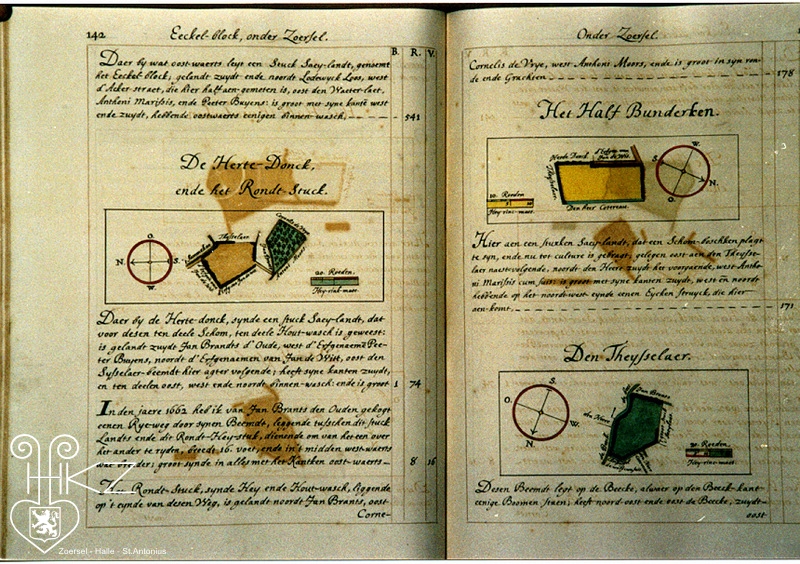 142
Eeckel-block, onder Zoersel.
B. R. V.
Daer by wat oost-waerts leyt een Stuck Saey-landt, genoemt
het Eeckel-block; gelandt zuydt ende noordt Lodewyck Loos, west
d'Acker-straet, die hier half aen-gemeten is, oost den Waeter-laet,
Anthoni Marissis, ende Peeter Buyens: is groot met syne kante west
ende zuydt, hebbende oostwaerts eenigen binnen-wasch.
541
De Herte-Donck,
ende het Rondt-Stuck.
O.
N.
S.
W.
Theysselaer
20. Roeden.
Hey-rinc-maet.
Daer by de Herte-donck, synde een stuck Saey-landt, dat
voor desen ten deele Schom, ten deele Hout-wasch is geweest:
is gelandt zuydt Jan Brandts d'Oude, west d'Erfgenaemē Pee-
ter Buyens, noordt d'Erfgenaemen van Jan de Witt, oost den
Tysselaer-beemdt hier agter volgende; heeft syne kanten zuydt,
en ten deelen oost, west ende noordt binnen-wasch: ende is groot
1 74
In den jaere 1662 heb ik van Jan Brants den Ouden gekogt
eenen Rye-weg door synen Beemdt, leggende tusschen dit stuck
Landts ende dit Rondt-Hey-stuk, dienende om van het een over
het ander te ryden, breedt 16. voet, ende in't midden west-waerts
wat breeder; groot synde in alles met het Kantken oost-waerts
8 16
Het Rondt-Stuck, synde Hey ende Hout-wasch, liggende
op't eynde van desen Weg, is gelandt noordt Jan Brants, oost
Corne-
HK
Zoersel - Halle - St.Antonius
Onder Zoersel.
Cornelis de Vrye, west Anthoni Moors, ende is groot in syn ron-
de ende Grachten
178
Het Half Bunderken.
Den Heer Cotereau
W.
S.
N.
O.
10. Roeden
Hey-rinc-maet.
Hier aen een stuxken Saey-landt, dat een Schom-boschken plagt
te syn, ende nu tot culture is gebragt; gelegen oost aen den Theysse-
laer naestvolgende, noordt den Heere zuydt het voorgaende, west Antho-
ni Marissis cum suis: is groot met syne kanten zuydt, west en noordt
hebbende op het noordt-west eynde eenen Eycken struyck, die hier
aen-komt
171
Den Theysselaer.
S.
O.
W.
N.
Jan Brants
20. Roeden
Hey-rinc-maet.
Desen Beemdt legt op de Beecke, alwaer op den Beeck-kant
eenige Boomen staen; heeft noord-oost ende oost de Beecke, zuydt-
oost